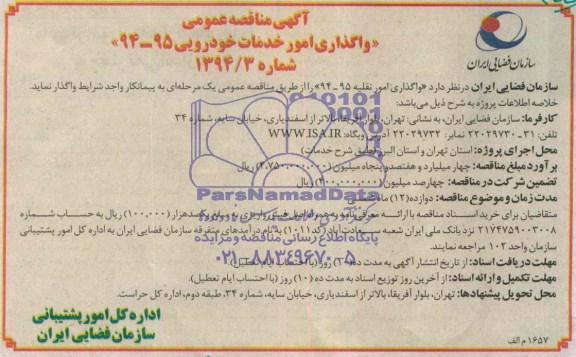 آگهی مناقصه عمومی
«واگذاری امور خدمات خودرویی ۹۵-۹۴»
شماره ۱۳۹۴/۳
سازمان فضایی ایران
سازمان فضایی ایران درنظر دارد «واگذاری امور نقلیه ۹۵-۹۴» را از طریق مناقصه عمومی یک مرحله‌ای به پیمانکار واجد شرایط واگذار نماید.
خلاصه اطلاعات پروژه به شرح ذیل می‌باشد:
کارفرما: سازمان فضایی ایران، به نشانی: تهران، بلوار آفریقا، بالاتر از اسفندیاری، خیابان سایه، شماره ۳۴
تلفن: ۳۱-۲۲۰۲۹۷۳۰ نمابر: ۲۲۰۲۹۷۳۳ آدرس وبگاه: WWW.ISA.IR
محل اجرای پروژه: استان تهران و استان البرز (طبق شرح خدمات)
برآورد مبلغ مناقصه: چهار میلیارد و هفتصد و پنجاه میلیون (۴,۷۵۰,۰۰۰,۰۰۰) ریال
تضمین شرکت در مناقصه: چهارصد میلیون (۴۰۰,۰۰۰,۰۰۰) ریال
مدت زمان و موضوع مناقصه: دوازده (۱۲) ماه
متقاضیان برای خرید اسناد مناقصه با ارائه معرفی‌نامه به همراه اصل فیش واریزی به مبلغ یکصد هزار (۱۰۰,۰۰۰) ریال به حساب شماره
۲۱۷۴۷۵۹۰۰۳۰۰۸ نزد بانک ملی ایران شعبه سعادت‌آباد (کد ۱۰۱۱) به نام درآمدهای متفرقه سازمان فضایی ایران به اداره کل امور پشتیبانی
سازمان واحد ۱۰۲ مراجعه نمایند.
مهلت دریافت اسناد: از تاریخ انتشار آگهی به مدت ده روز (با احتساب ایام تعطیل).
مهلت تکمیل و ارائه اسناد: از آخرین روز توزیع اسناد به مدت ده (۱۰) روز (با احتساب ایام تعطیل).
محل تحویل پیشنهادها: تهران، بلوار آفریقا، بالاتر از اسفندیاری، خیابان سایه، شماره ۳۴، طبقه دوم، اداره کل حراست.
اداره کل امور پشتیبانی
سازمان فضایی ایران
۱۶۵۷ م الف
ParsNamadData
پایگاه اطلاع رسانی مناقصه و مزایده
۰۲۱-۸۸۳۴۹۶۷۰-۵